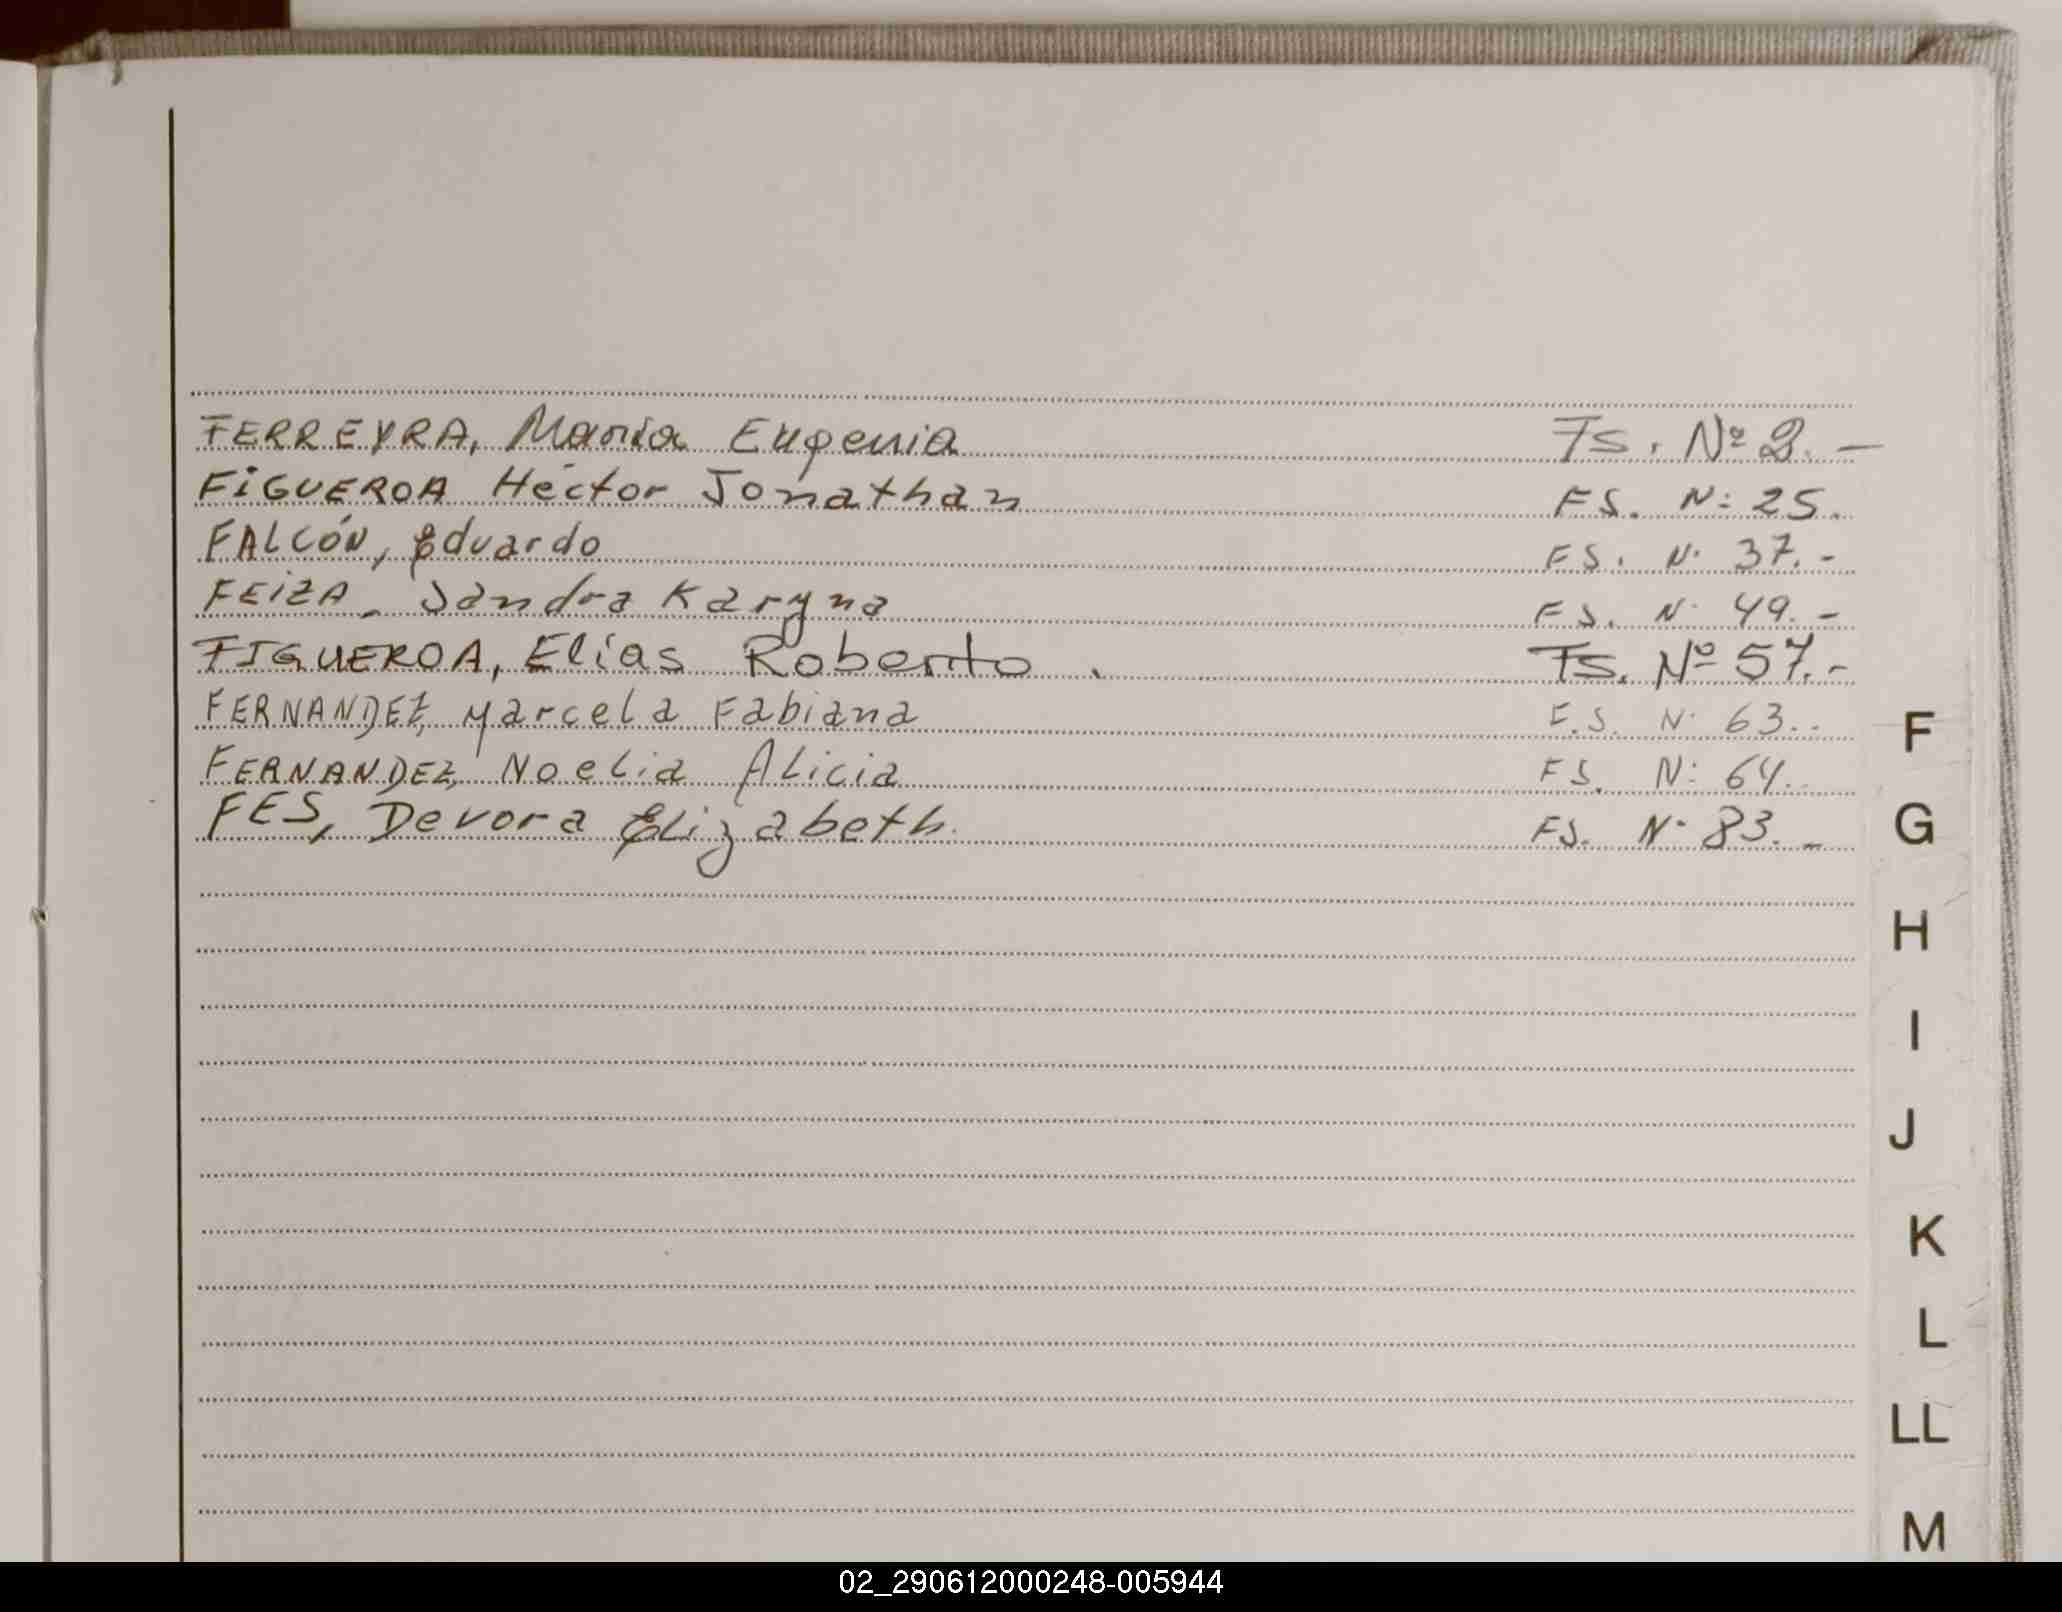 FERREYRA, María Eugenia Fs. Nº 2. -
FiGUEROA Héctor Jonathan FS. N: 25.
FALCÓN, Eduardo FS. N· 37. -
FEiZA, Sandra Karyna FS. N· 49. -
FIGUEROA, Elías Roberto . Fs. Nº 57. -
FERNANDEZ, Marcela Fabiana F.S. N· 63. .
FERNANDEZ, Noelia Alicia FS. N: 64. .
FES, Devora Elizabeth. FS. N· 83. -
F
G
H
I
J
K
L
LL
M
02_290612000248-005944